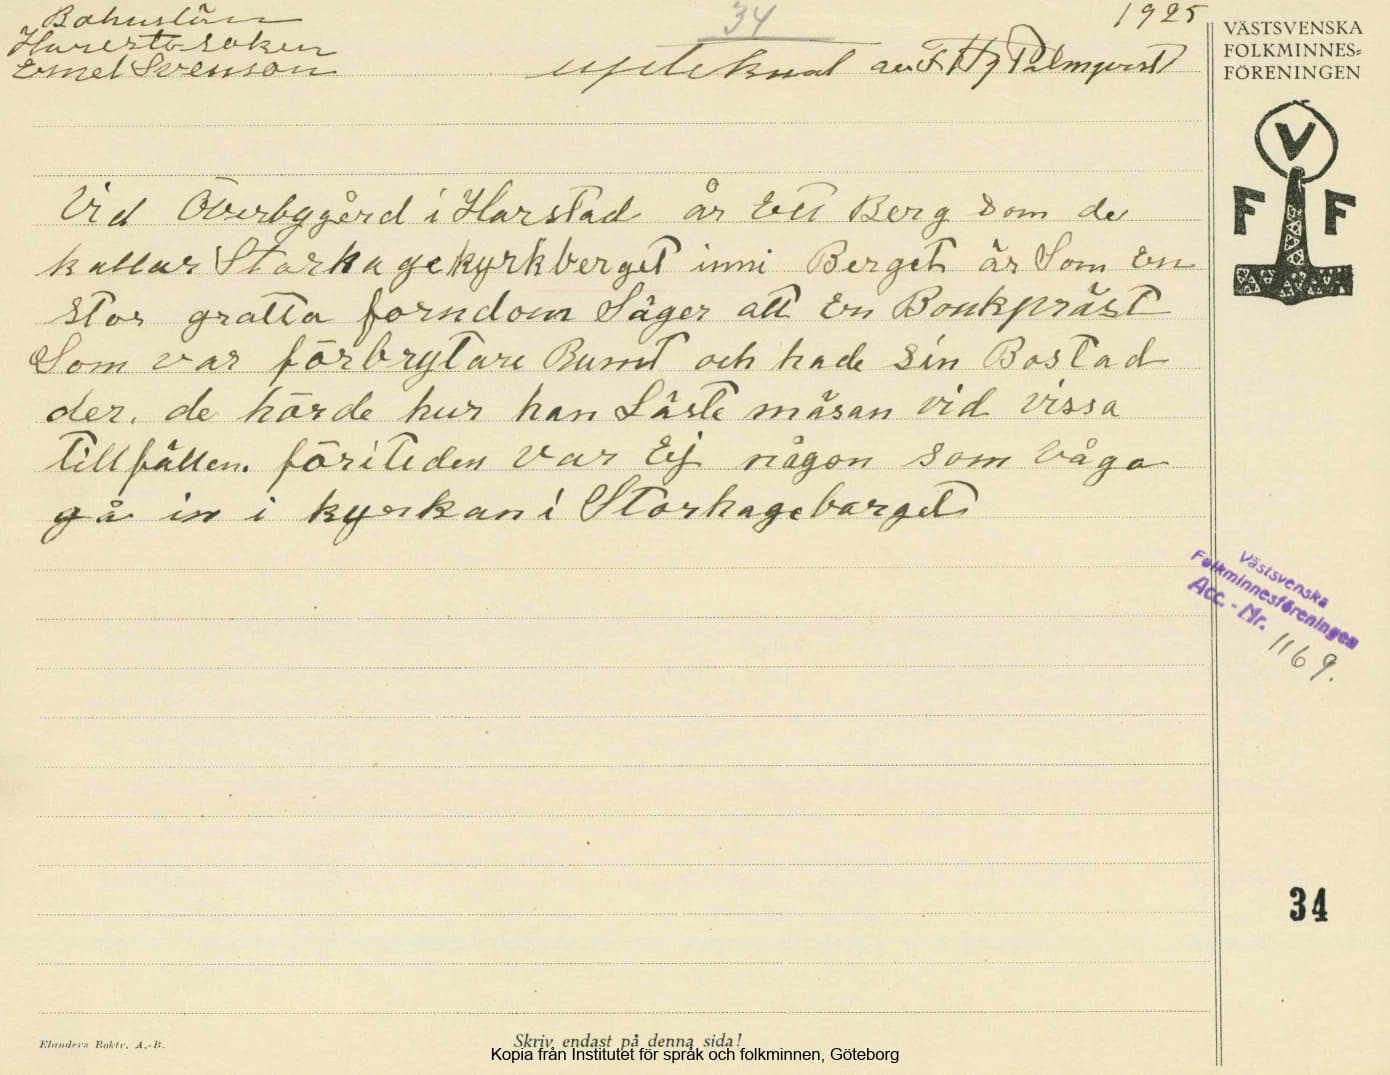 Bohuslän
Harestasoken
Emel Svenson
34
1925
upteknad av F Hj Palmqvist
VÄSTSVENSKA
FOLKMINNES=
FÖRENINGEN
V
F F
Vid Överbygård i Harstad år Ett Berg som de
kallar Storhagekyrkberget inni Berget är Som En
stor grotta forndom Säger att En Bonkpräst
Som var förbrytare Rumt och hade sin Bostad
der. de hörde hur han Läste mäsan vid vissa
tillfällen. föritiden var Ej någon som våga
gå in i kyrkan i Storhagebarget
Västsvenska
Folkminnesföreningen
Acc. - Nr. 1169.
34
Elanders Boktr. A.-B.
Skriv endast på denna sida!
Kopia från Institutet för språk och folkminnen, Göteborg